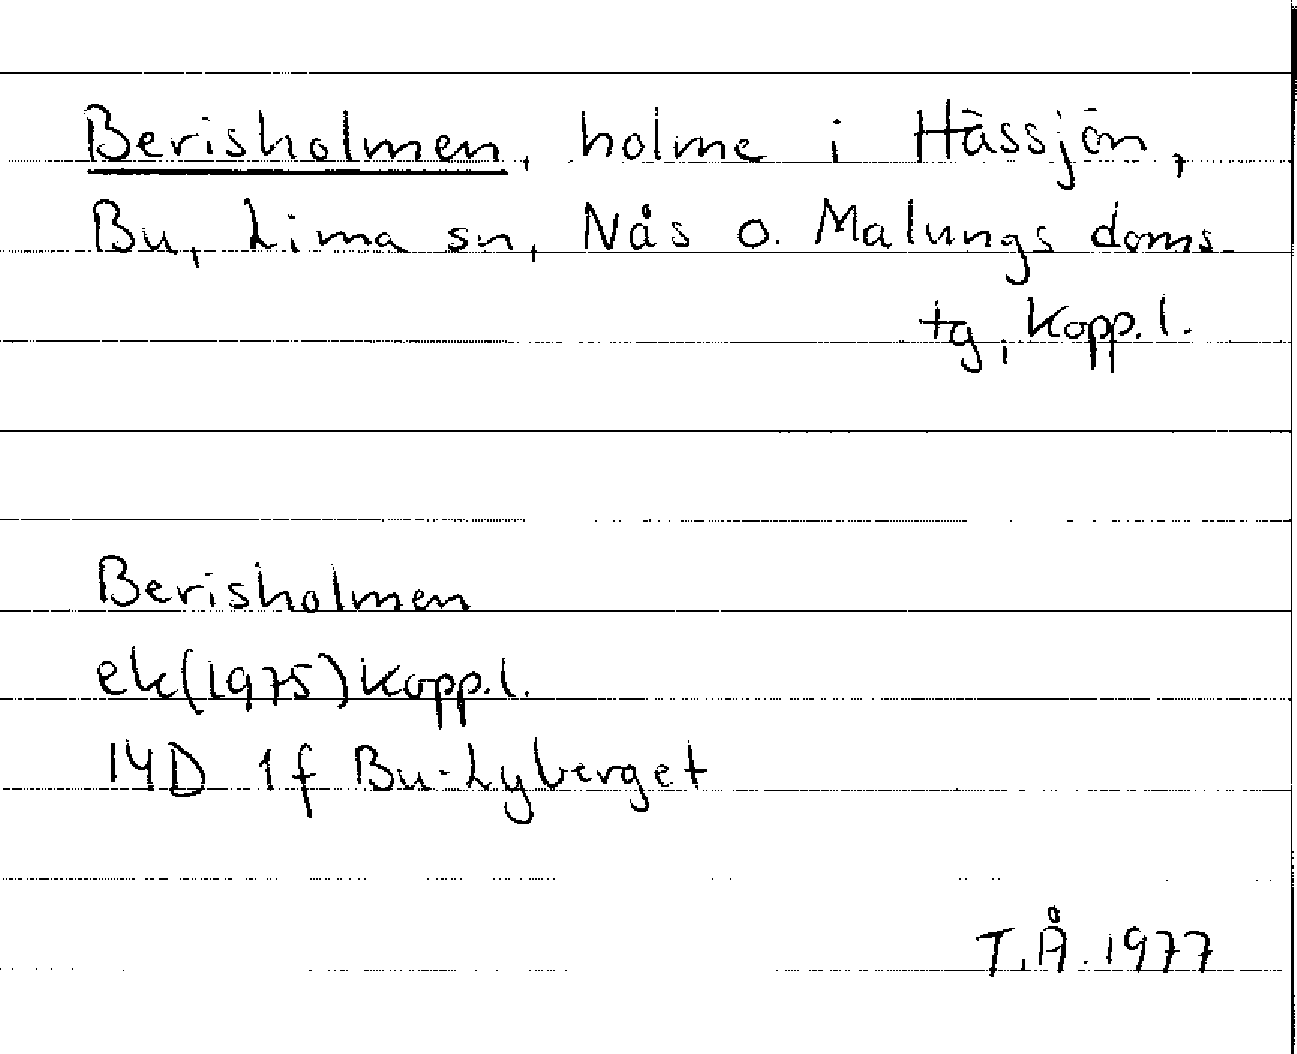 Berisholmen, holme i Hässjön,
Bu, Lima sn, Nås o. Malungs doms-
tg, Kopp.l.
Berisholmen
ek(1975)Kopp.l.
14D 1f Bu-Lyberget
T.Å. 1977